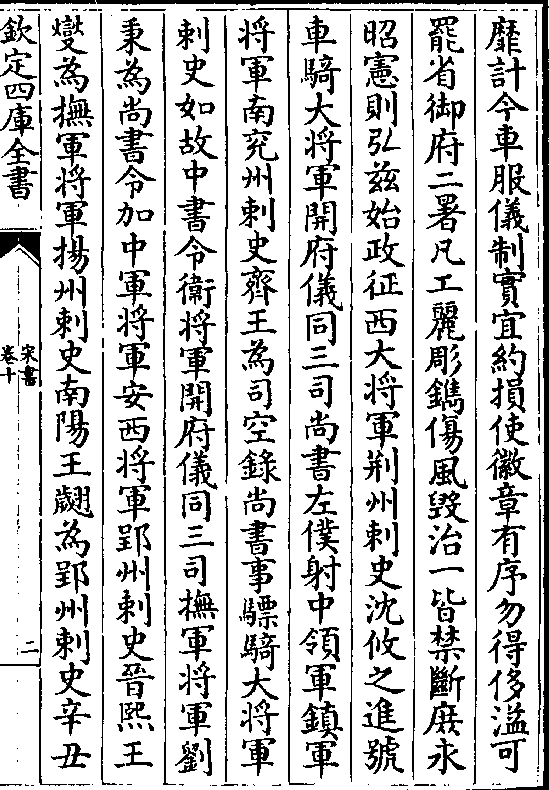 靡計今車服儀制實宜約損使徽章有序勿得侈溢可
罷省御府二署凡工麗彫鐫傷風毀治一皆禁斷庶永
昭憲則弘兹始政征西大將軍荆州刺史沈攸之進號
車騎大將軍開府儀同三司尚書左僕射中領軍鎮軍
將軍南兖州刺史齊王為司空錄尚書事驃騎大將軍
刺史如故中書令衛將軍開府儀同三司撫軍將軍劉
秉為尚書令加中軍將軍安西將軍郢州刺史晉熙王
燮為撫軍將軍揚州刺史南陽王翽為郢州刺史辛丑
欽定四庫全書
宋書
卷十
二